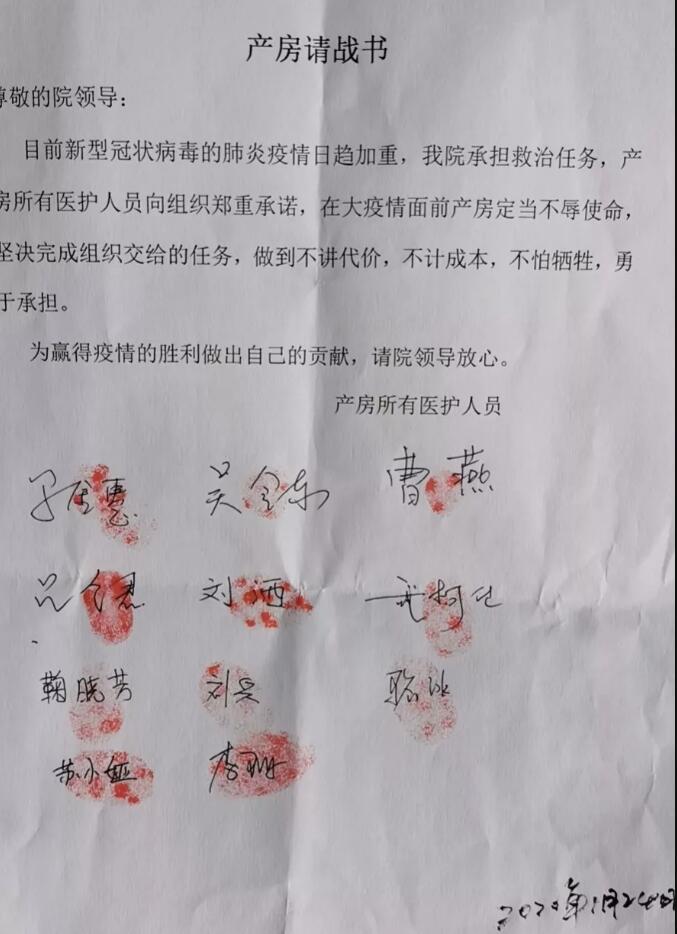 产房请战书
尊敬的院领导：
目前新型冠状病毒的肺炎疫情日趋加重，我院承担救治任务，产
房所有医护人员向组织郑重承诺，在大疫情面前产房定当不辱使命，
坚决完成组织交给的任务，做到不讲代价，不计成本，不怕牺牲，勇
于承担。
为赢得疫情的胜利做出自己的贡献，请院领导放心。
产房所有医护人员
曹燕
刘洒
鞠晓芳 刘兵
苏小娅 李珊
2020年1月24日